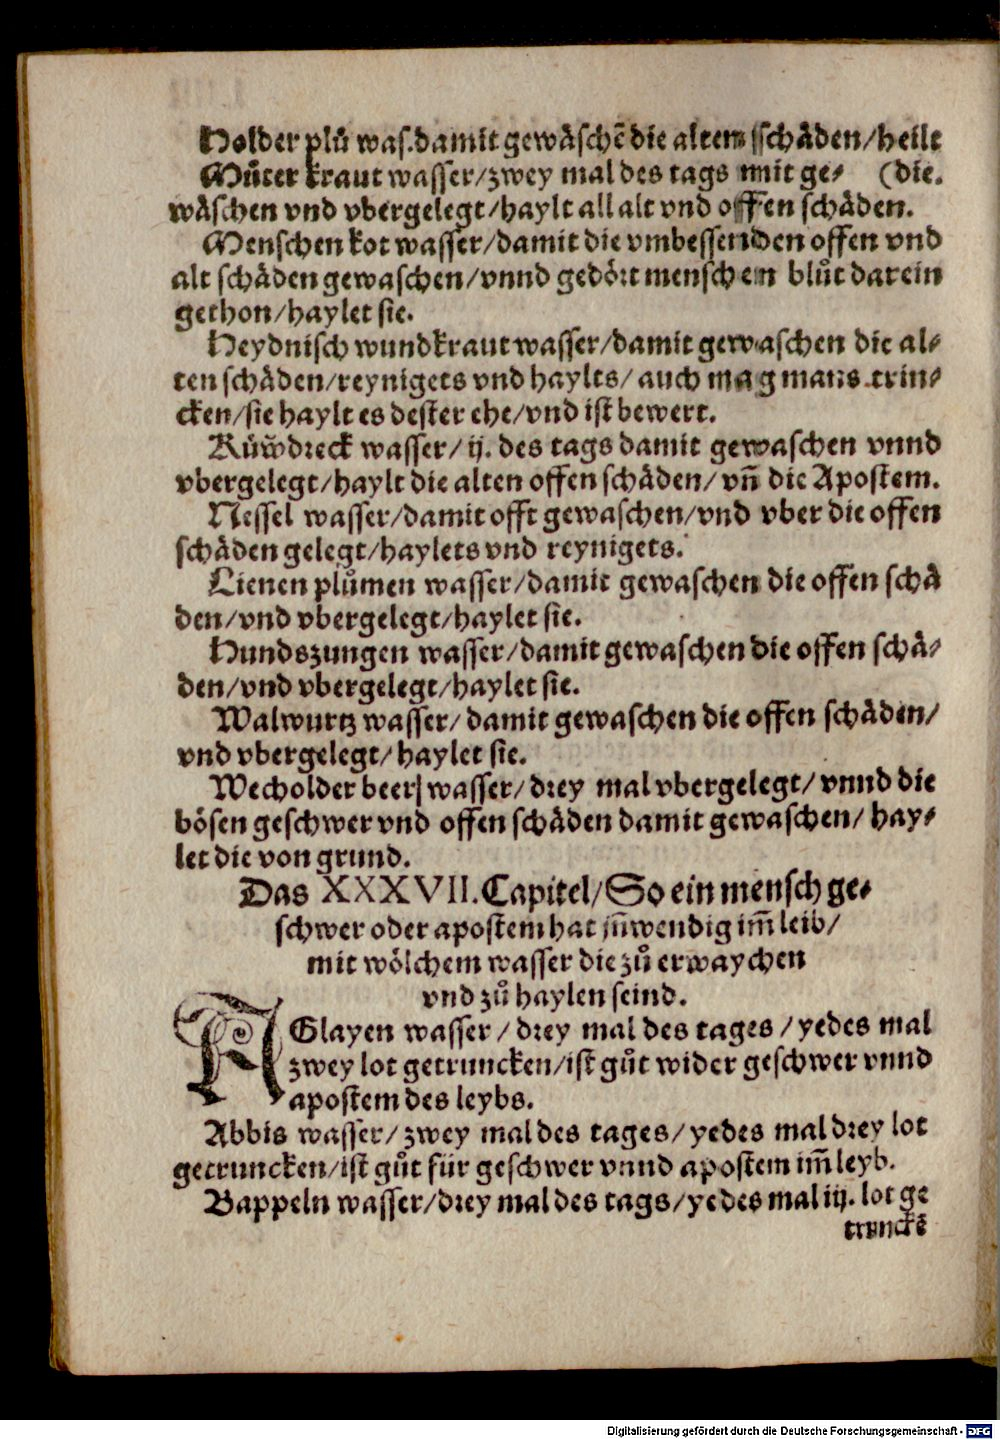 Holder plů was.damit gewäschē die alten schäden/heilt
Můter kraut wasser/zwey mal des tags mit ge⸗ (die.
wäschen vnd vbergelegt/haylt all alt vnd offen schäden.
Menschen kot wasser/damit die vmbessenden offen vnd
alt schäden gewaschen/vnnd gedört menschen blůt darein
gethon/haylet sie.
Heydnisch wundkraut wasser/damit gewaschen die al⸗
ten schäden/reynigets vnd haylts/auch mag mans trin⸗
cken/sie haylt es dester ehe/vnd ist bewert.
Küwdreck wasser/ij. des tags damit gewaschen vnnd
vbergelegt/haylt die alten offen schäden/vñ die Apostem.
Nessel wasser/damit offt gewaschen/vnd vber die offen
schäden gelegt/haylets vnd reynigets.
Lienen plůmen wasser/damit gewaschen die offen schä
den/vnd vbergelegt/haylet sie.
Hundszungen wasser/damit gewaschen die offen schä⸗
den/vnd vbergelegt/haylet sie.
Walwurtz wasser/damit gewaschen die offen schäden/
vnd vbergelegt/haylet sie.
Wecholder beer wasser/drey mal vbergelegt/vnnd die
bösen geschwer vnd offen schäden damit gewaschen/hay⸗
let die von grund.
Das XXXVII.Capitel/So ein mensch ge⸗
schwer oder apostem hat iñwendig im̄ leib/
mit wölchem wasser die zů erwaychen
vnd zů haylen seind.
AGlayen wasser/drey mal des tages/yedes mal
zwey lot getruncken/ist gůt wider geschwer vnnd
apostem des leybs.
Abbis wasser/zwey mal des tages/yedes mal drey lot
getruncken/ist gůt für geschwer vnnd apostem im̄ leyb.
Bappeln wasser/drey mal des tags/yedes mal iij. lot ge
trunckē
Digitalisierung gefördert durch die Deutsche Forschungsgemeinschaft - DFG